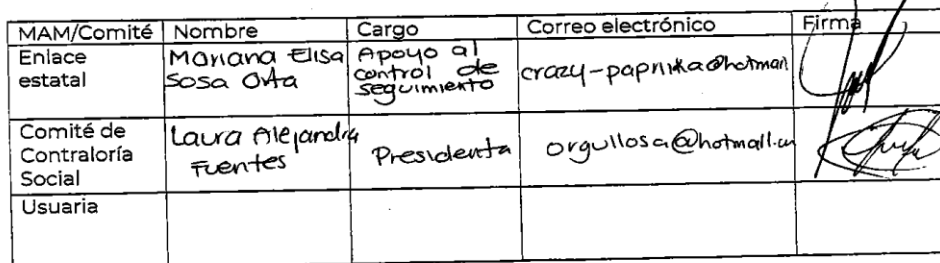 MAM/Comité Nombre Cargo Correo electrónico Firma
Enlace estatal Mariana Elisa Sosa Orta Apoyo al control de seguimiento crazy-paprika@hotmail
Comité de Contraloría Social Laura Alejandra Fuentes Presidenta orgullosa@hotmail.
Usuaria